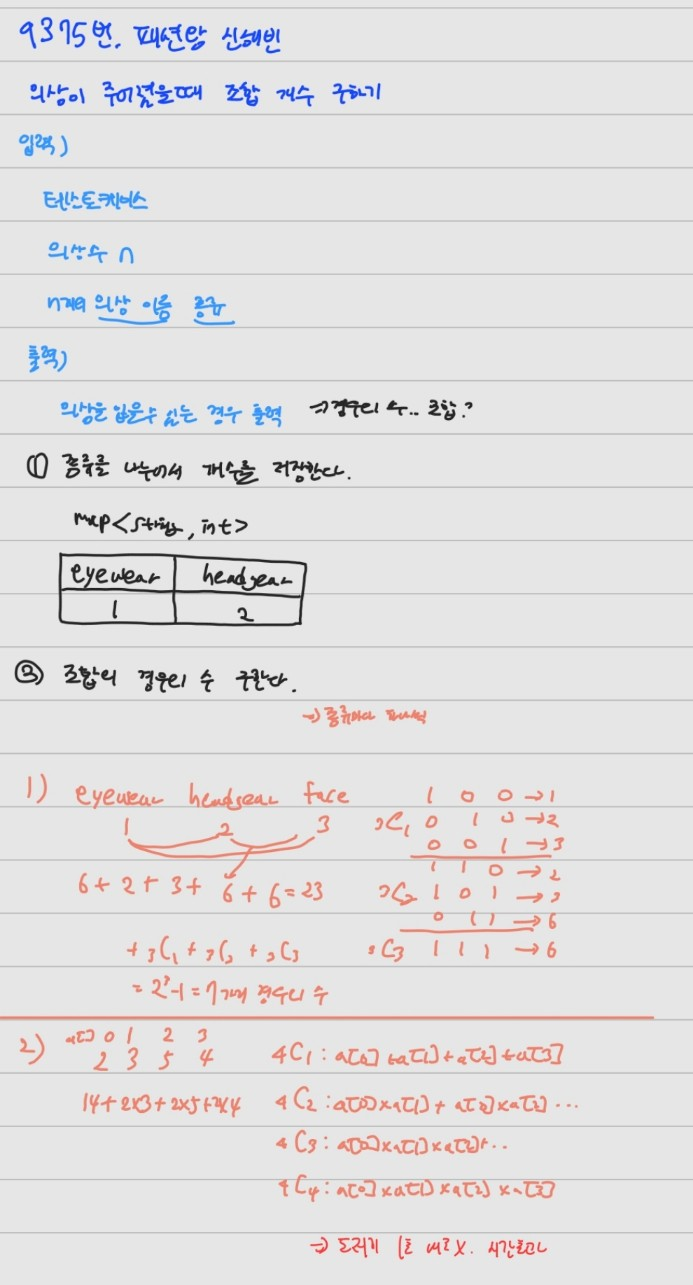 9375번. 패션왕 신해빈
의상이 주어졌을때 조합 개수 구하기
입력)
테스트케이스
의상수 n
n개의 의상 이름 종류
출력)
의상을 입을수 있는 경우 출력 => 경우의 수.. 조합?
① 종류를 나누어서 개수를 저장한다.
map<string, int>
eyewear headgear
1 2
② 조합의 경우의 수 구한다.
→ 종류마다
1) eyewear headgear face
1 2 3
6+2+3+ 6+6=23
+ 3C1 + 3C2 + 3C3
= 2³-1 = 7가지 경우의 수
1 0 0 → 1
3C1 0 1 0 → 2
0 0 1 → 3
1 1 0 → 2
3C2 1 0 1 → 3
0 1 1 → 6
3C3 1 1 1 → 6
2) a[] 0 1 2 3
2 3 5 4
14+2x3+2x5+2x4
4C1 : a[0]+a[1]+a[2]+a[3]
4C2 : a[0]xa[1]+a[0]xa[2]...
4C3 : a[0]xa[1]xa[2]+..
4C4 : a[0]xa[1]xa[2]xa[3]
X. 시간초과